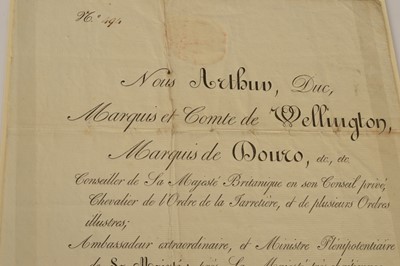 N.º 494
Nous Arthur, Duc,
Marquis et Comte de Wellington,
Marquis de Douro, etc, etc
Conseiller de Sa Majesté Britanique en son Conseil privé;
Chevalier de l'Ordre de la Jarretière, et de plusieurs Ordres
illustres;
Ambassadeur extraordinaire, et Ministre Plénipotentiaire
de Sa Majesté, près Sa Majesté